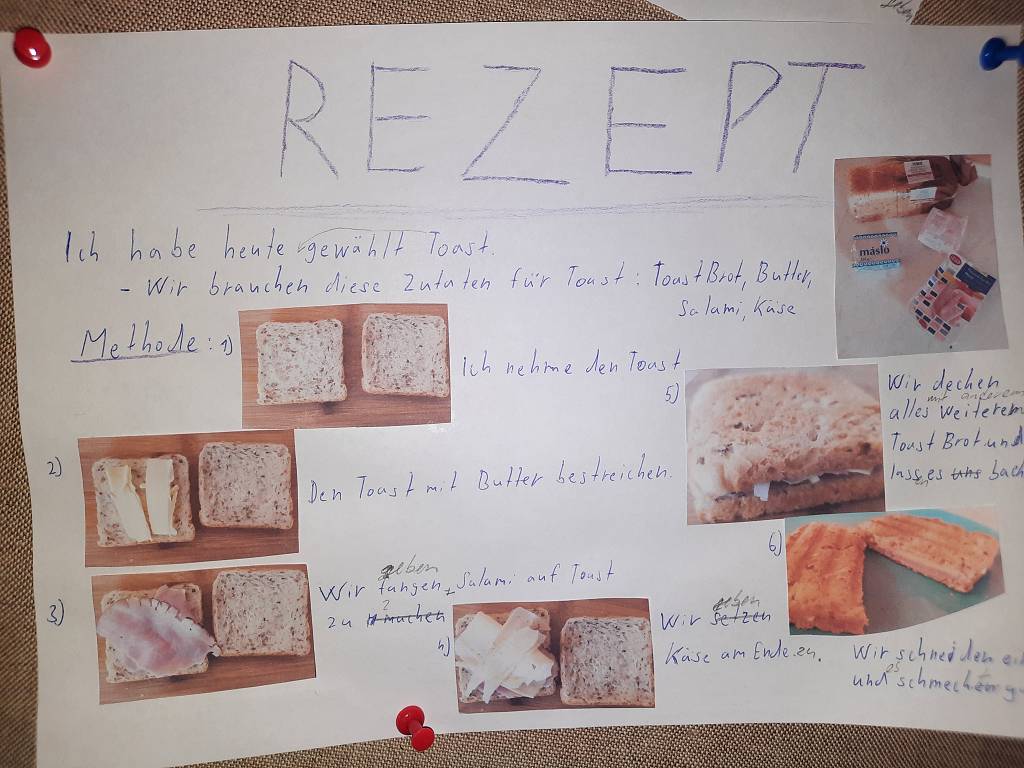 REZEPT
Ich habe heute gewählt Toast.
- Wir brauchen diese Zutaten für Toast: Toast Brot, Butter,
Salami, Käse
máslo
Methode: 1)
Ich nehme den Toast
2)
Den Toast mit Butter bestreichen.
3)
geben
Wir fangen Salami auf Toast
zu machen
4)
geben
Wir setzen
Käse am Ende zu.
5)
Wir dechen
mit anderem
alles weiterem
Toast Brot und
lassen es uns bach
6)
Wir schneiden
es
und schmecken